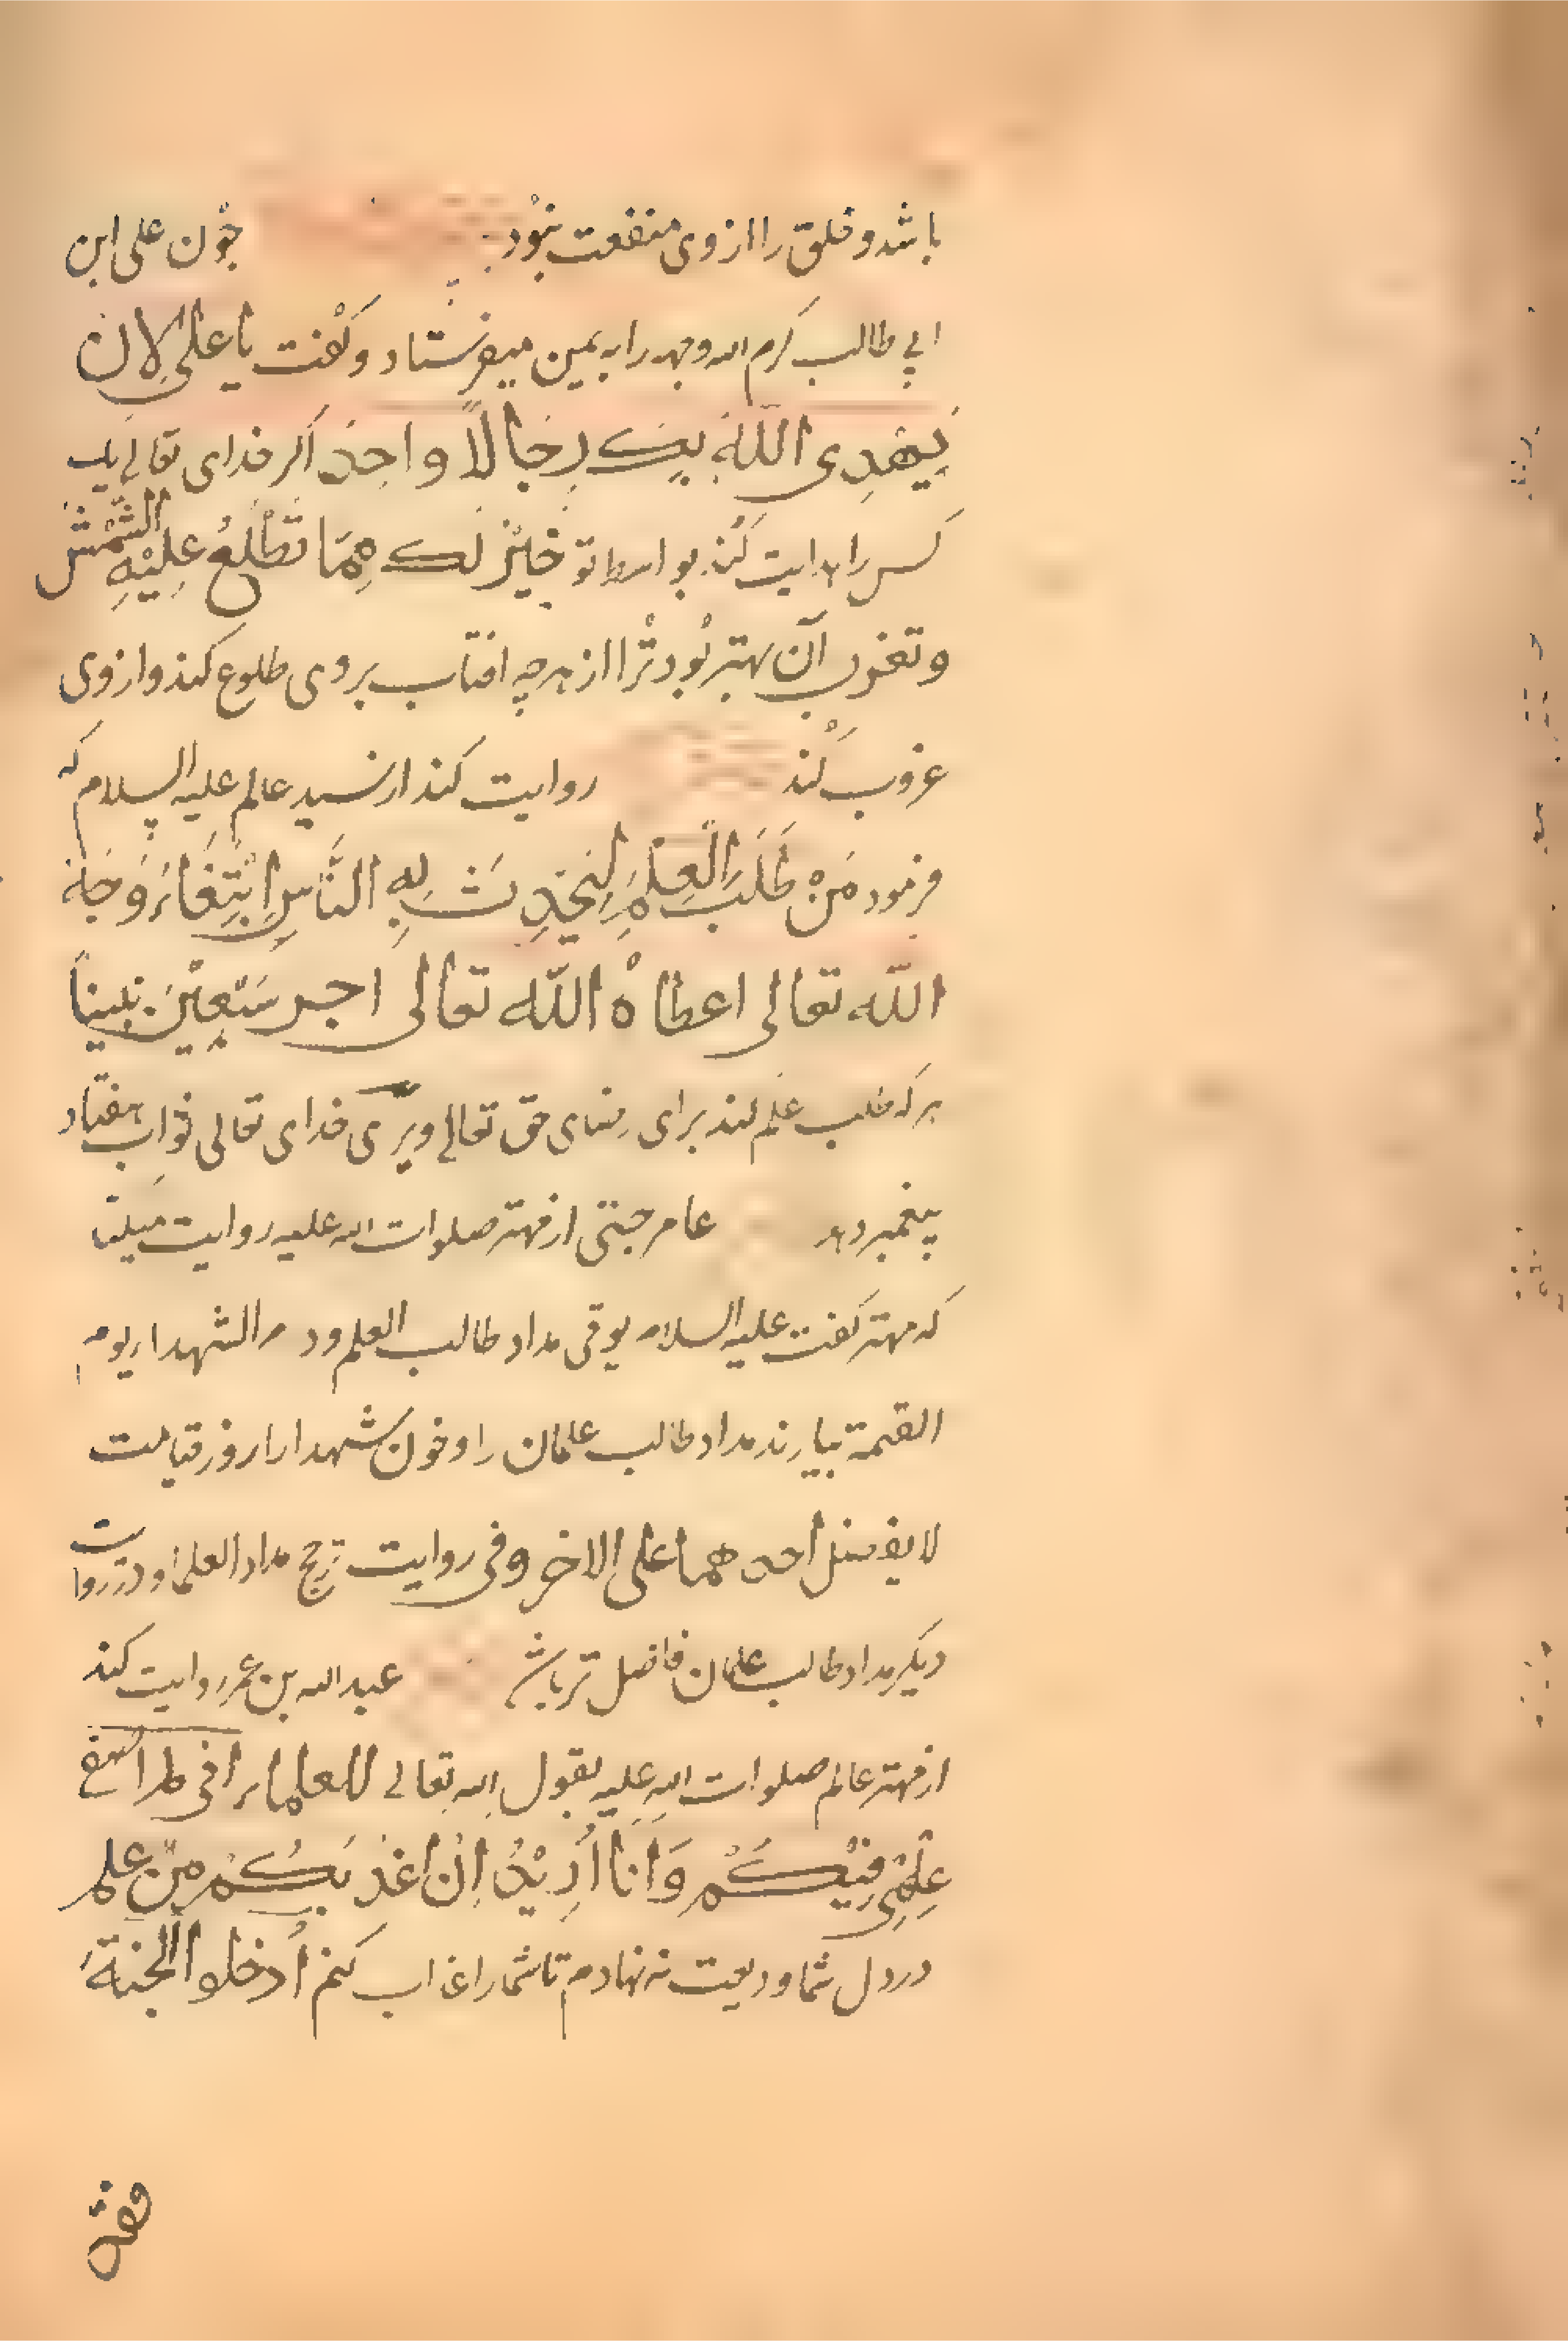 باشد و خلق را ازوی منفعت نبود چون علی ابن
ابی طالب کرم الله وجهه را به یمین میفرستاد و گفت یا علی لان
یهدی الله بک رجالا واحد اگر خدای تعالی یک
کس را هدایت کند بواسطه تو خیر لک مما تطلع علیه الشمس
وتغرب آن بهتر بود ترا از هرچه افتاب بروی طلوع کند و ازوی
غروب کند روایت کند از سید عالم علیه السلام که
فرمود من طلب العلم لیحدث به الناس ابتغاء وجه
الله تعالی اعطاه الله تعالی اجر سبعین نبینا
هر که طلب علم کند برای رضای حق تعالی ویرا خدای تعالی ثواب هفتاد
پیغمبر دهد عامر جهنی از مهتر صلوات الله علیه روایت میکند
که مهتر گفت علیه السلام یوتی مداد طالب العلم و دم الشهداء یوم
القیمة بیارند مداد طالب علمان را و خون شهدا را روز قیامت
لا یفضل احدهما علی الاخر وفی روایت ترجح مداد العلماء و در روایت
دیگر مداد طالب علمان فاضل تر باشد عبد الله بن عمر روایت کند
از مهتر عالم صلوات الله علیه یقول الله تعالی للعلماء انی لم اضع
علمی فیکم وانا ارید ان اعذبکم من علم
در دل شما ودیعت نه نهادم تا شما را عذاب کنم ادخلوا الجنة